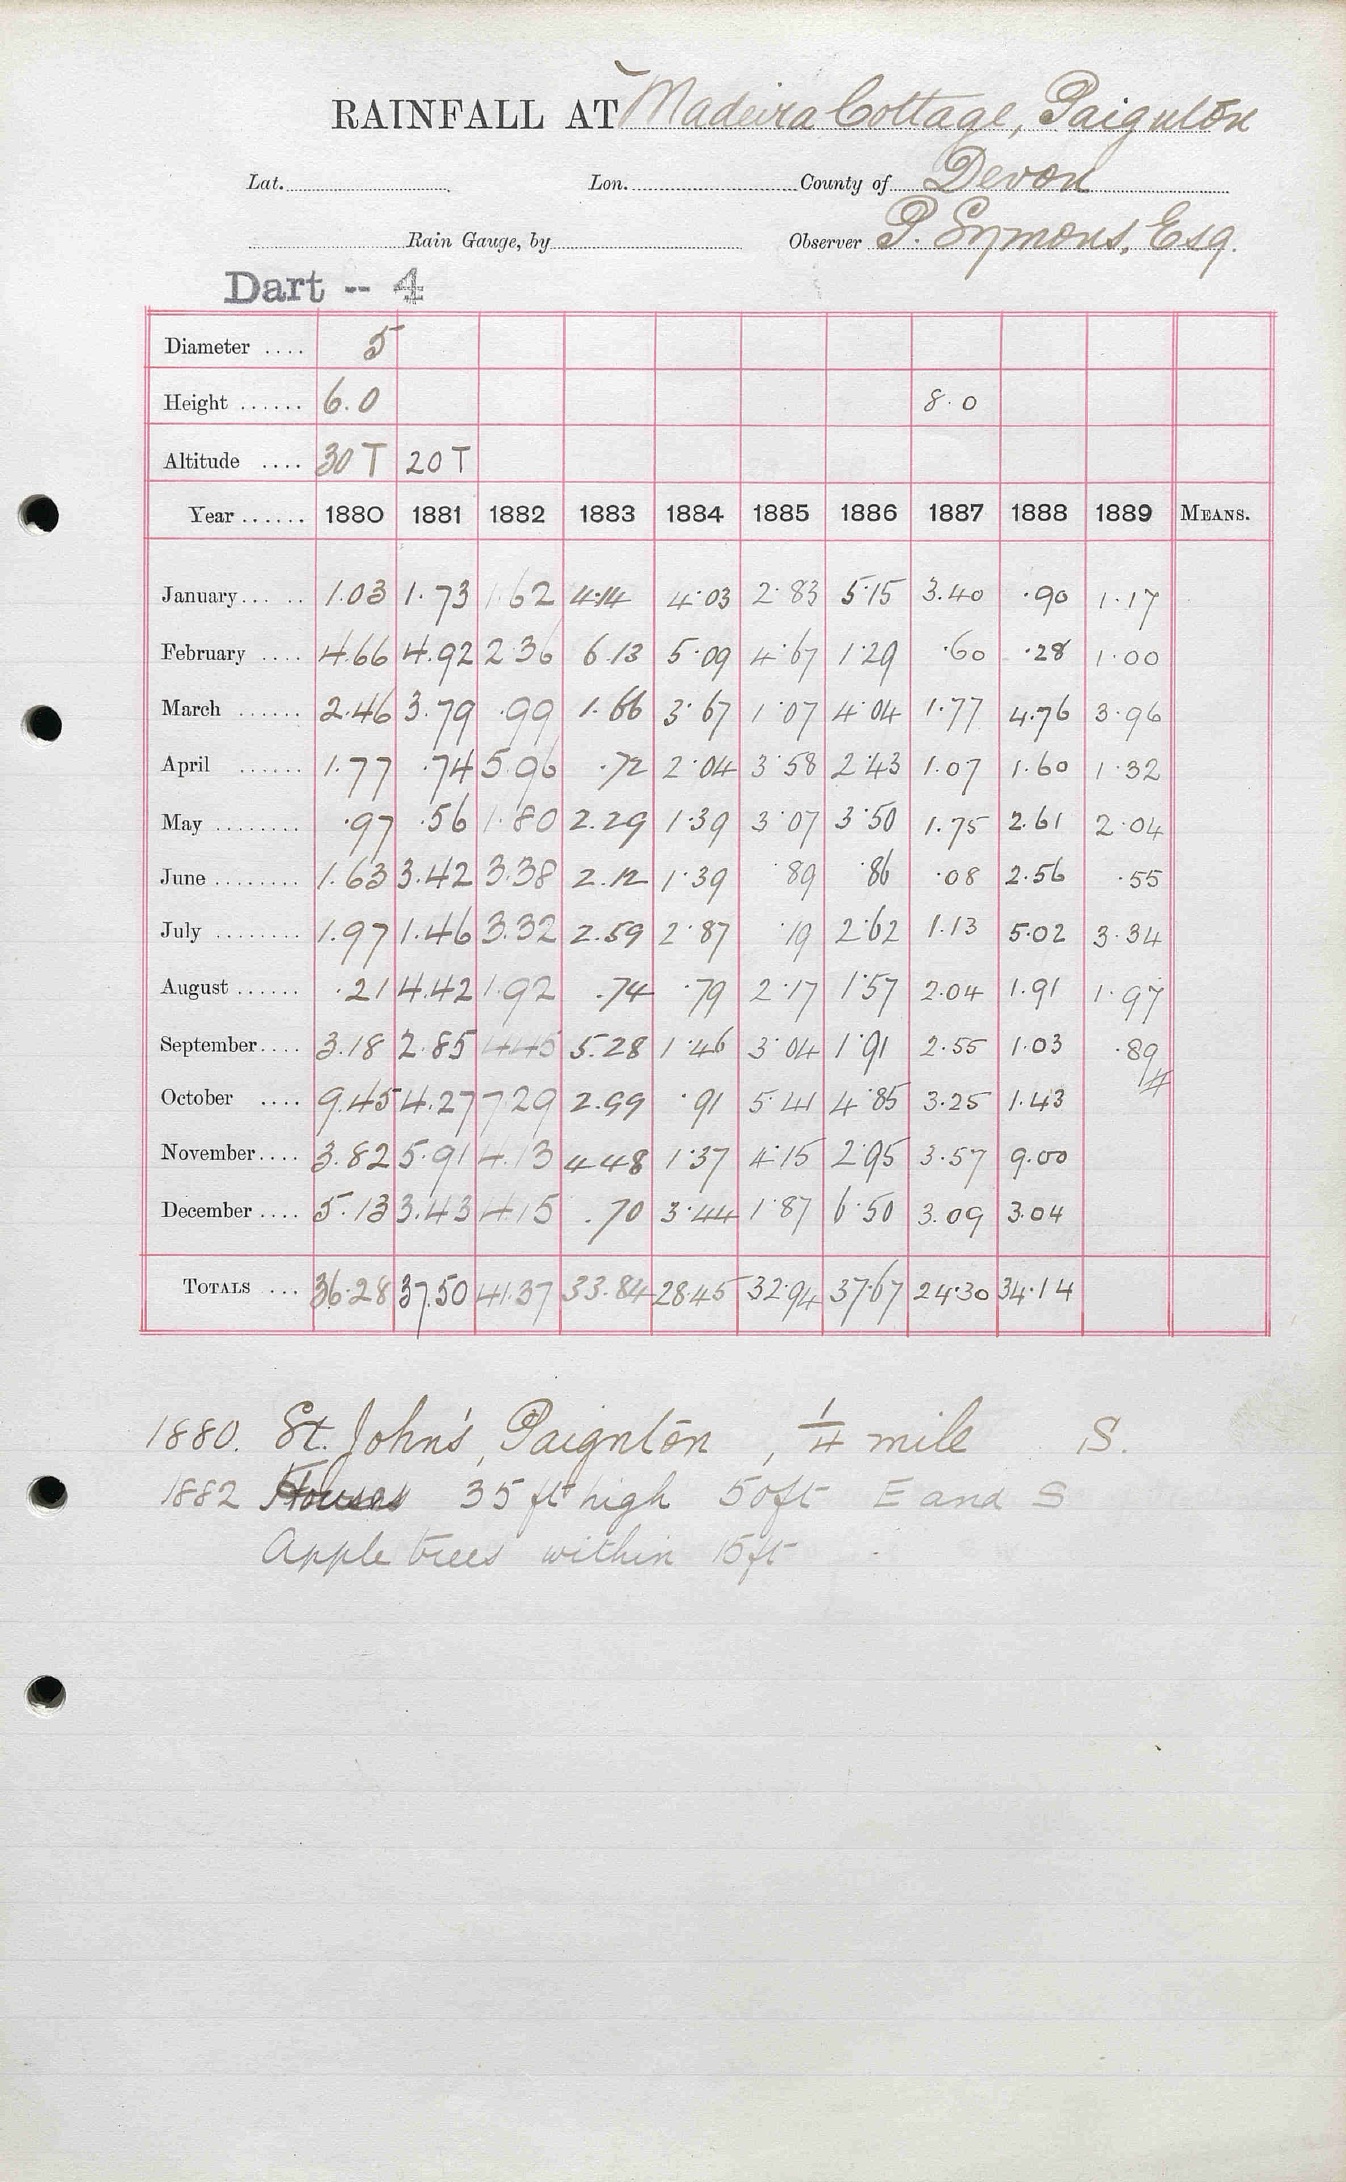 RAINFALL AT Madeira Cottage, Paignton
Lat. Lon. County of Devon
Rain Gauge, by Observer P. Symons, Esq.
Dart -- 4
Diameter .... 5
Height ...... 6.0 8.0
Altitude .... 30 T 20 T
Year ...... 1880 1881 1882 1883 1884 1885 1886 1887 1888 1889 MEANS.
January... .. 1.03 1.73 1.62 4.14 4.03 2.83 5.15 3.40 .90 1.17
February .... 4.66 4.92 2.36 6.13 5.09 4.67 1.29 .60 .28 1.00
March ...... 2.46 3.79 .99 1.66 3.67 1.07 4.04 1.77 4.76 3.96
April ...... 1.77 .74 5.96 .72 2.04 3.58 2.43 1.07 1.60 1.32
May ........ .97 .56 1.80 2.29 1.39 3.07 3.50 1.75 2.61 2.04
June ........ 1.63 3.42 3.38 2.12 1.39 .89 .86 .08 2.56 .55
July ........ 1.97 1.46 3.32 2.59 2.87 .19 2.62 1.13 5.02 3.34
August ...... .21 4.42 1.92 .74 .79 2.17 1.57 2.04 1.91 1.97
September.... 3.18 2.85 4.45 5.28 1.46 3.04 1.91 2.55 1.03 .89
October .... 9.45 4.27 7.29 2.99 .91 5.41 4.85 3.25 1.43 #
November.... 3.82 5.91 4.13 4.48 1.37 4.15 2.95 3.57 9.00
December .... 5.13 3.43 4.15 .70 3.44 1.87 6.50 3.09 3.04
TOTALS ... 36.28 37.50 41.37 33.84 28.45 32.94 37.67 24.30 34.14
1880. St. John's, Paignton, 1/4 mile S.
1882 Houses 35 ft high 50ft E and S
Apple trees within 15ft